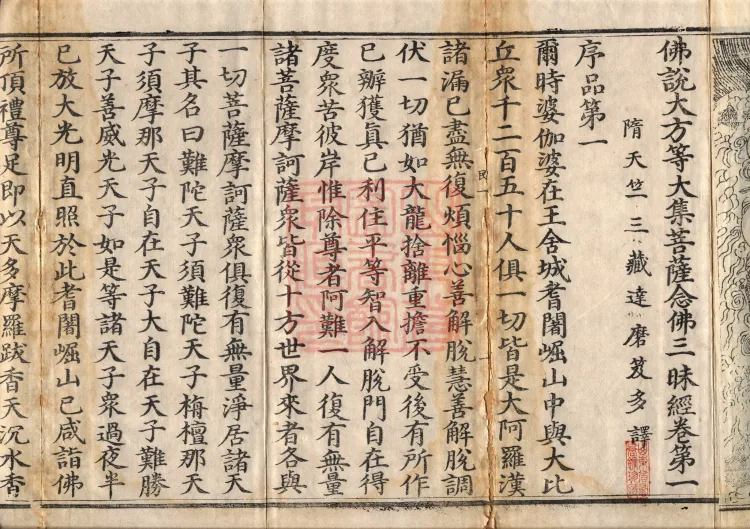 佛說大方等大集菩薩念佛三昧經卷第一
隋天竺三藏達磨笈多譯
序品第一
爾時婆伽婆在王舍城耆闍崛山中與大比
丘衆千二百五十人俱一切皆是大阿羅漢
諸漏已盡無復煩惱心善解脫慧善解脫調
民一
伏一切猶如大龍捨離重擔不受後有所作
已辦獲真已利住平等智入解脫門自在得
度衆苦彼岸惟除尊者阿難一人復有無量
諸菩薩摩訶薩衆皆從十方世界來者各與
一切菩薩摩訶薩衆俱復有無量淨居諸天
子其名曰難陀天子須難陀天子栴檀那天
子須摩那天子自在天子大自在天子難勝
天子善威光天子如是等諸天子衆過夜半
已放大光明直照於此耆闍崛山已咸詣佛
所頂禮尊足即以天多摩羅跋香天沉水香